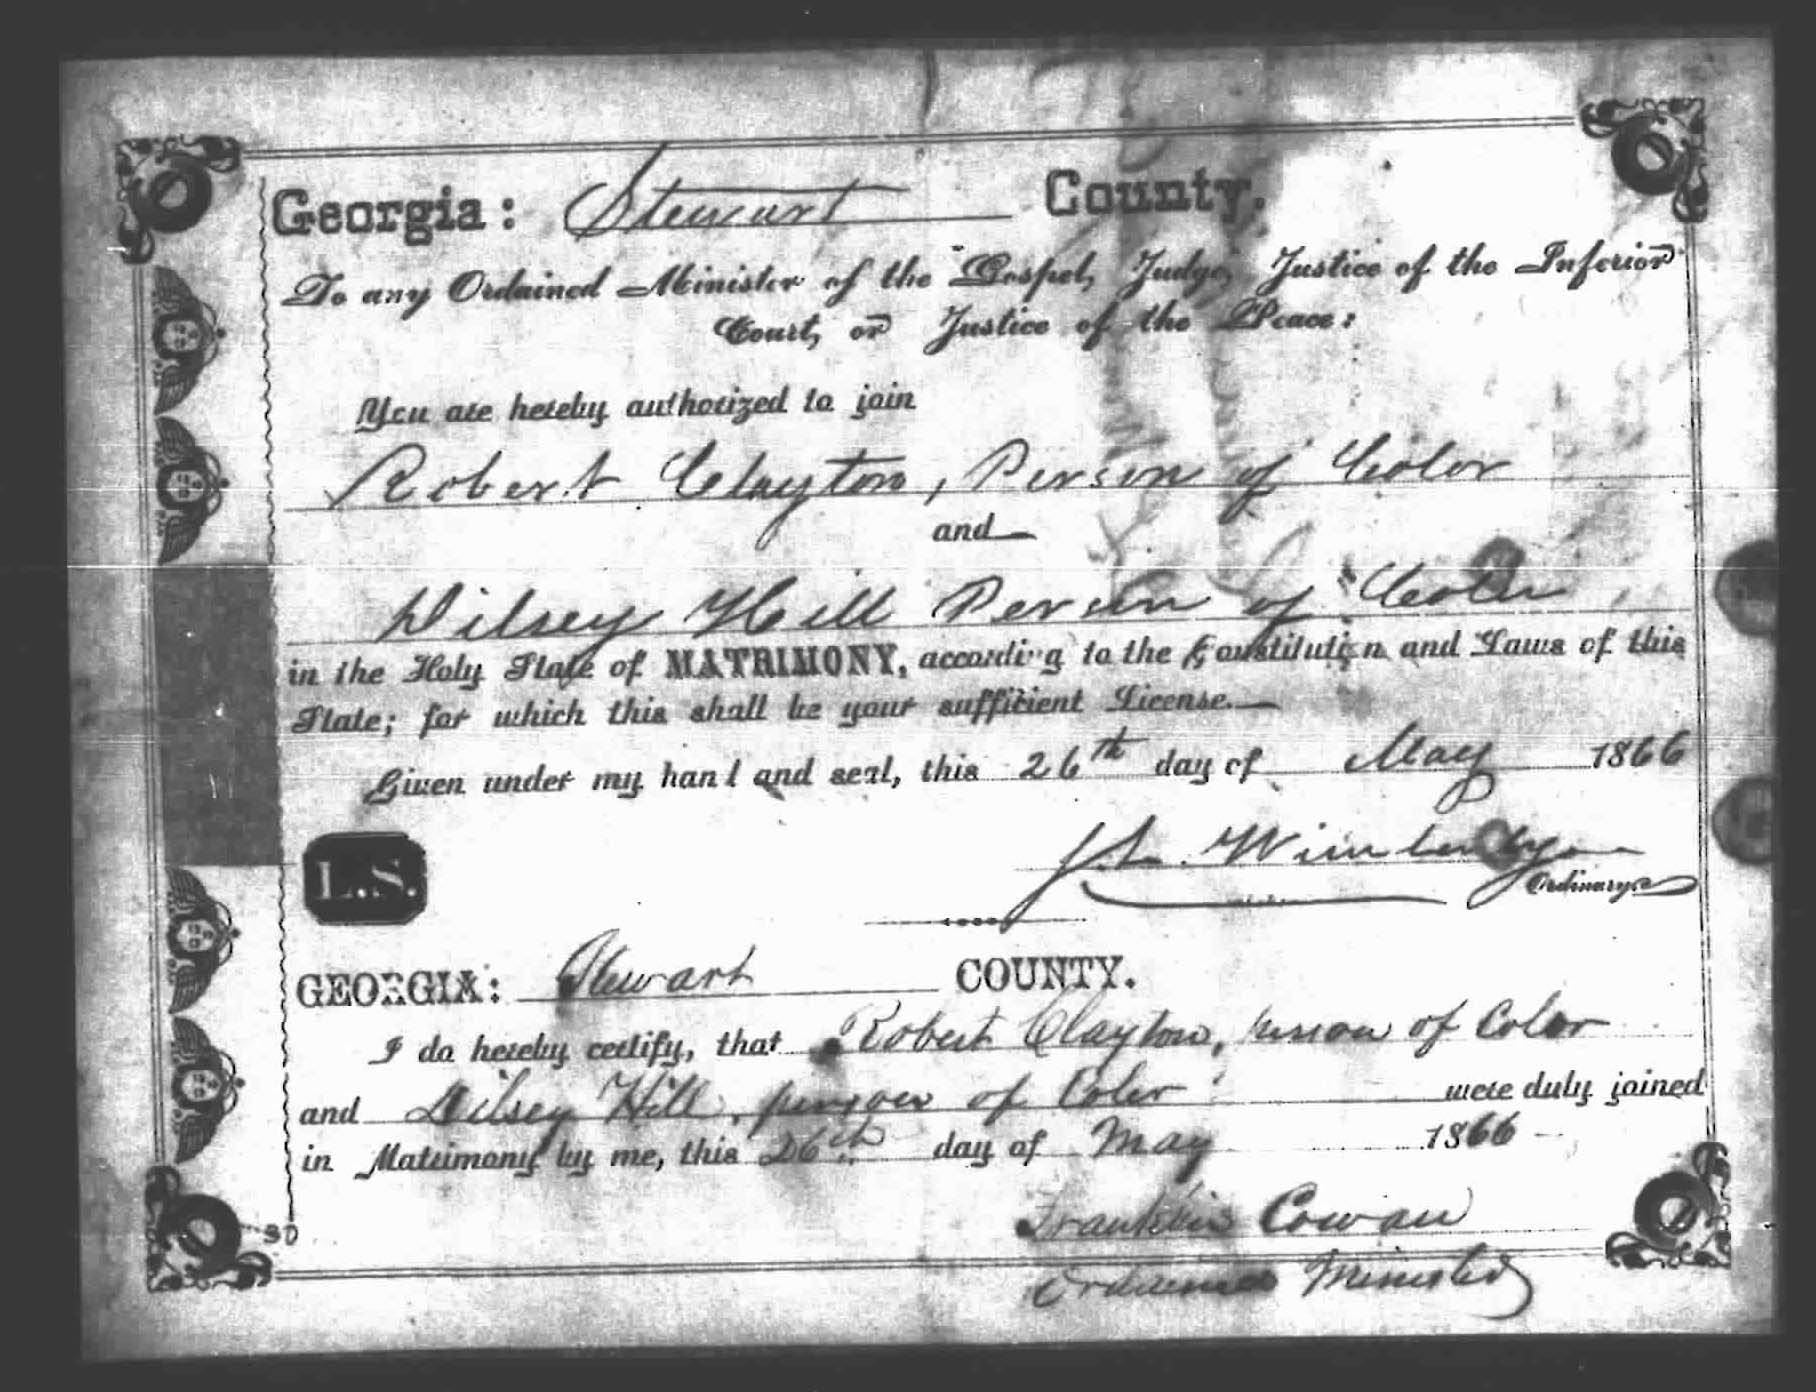 Georgia: Stewart County.
To any Ordained Minister of the Gospel, Judge, Justice of the Inferior
Court, or Justice of the Peace:
You are hereby authorized to join
Robert Clayton, Person of Color
and
Dilsey Hill Person of Color
in the Holy State of MATRIMONY, according to the Constitution and Laws of this
State; for which this shall be your sufficient License.
Given under my hand and seal, this 26th day of May 1866
J. L. Wimberly
Ordinary.
L.S.
GEORGIA: Stewart COUNTY.
I do hereby certify, that Robert Clayton, person of Color
and Dilsey Hill, person of Color were duly joined
in Matrimony by me, this 26th day of May 1866
Franklin Cowan
Ordained Minister